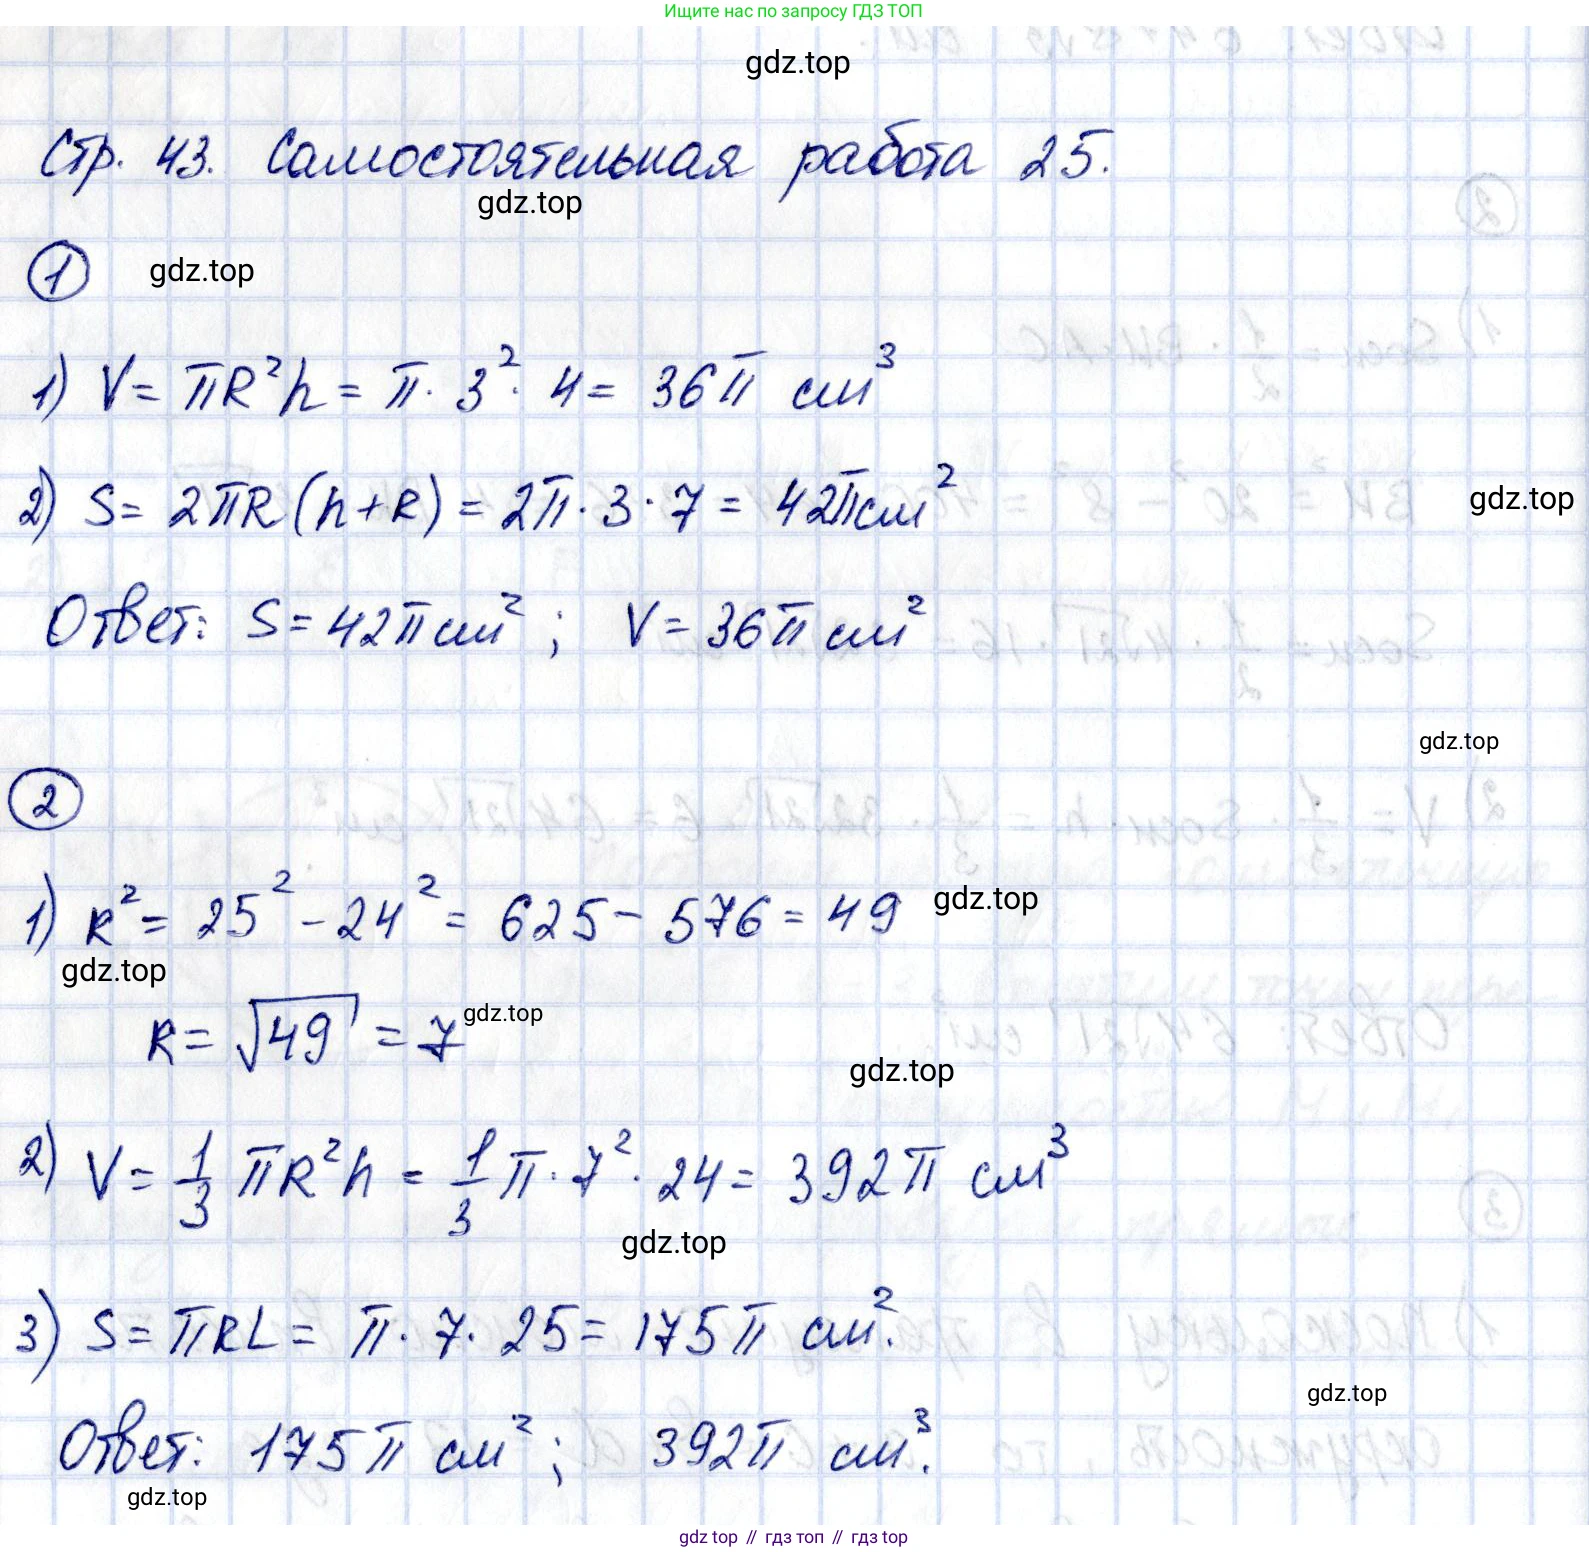 Ищите нас по запросу ГДЗ ТОП
gdz.top
Стр. 43. Самостоятельная работа 25.
gdz.top
1 gdz.top
1) V = πR²h = π · 3² · 4 = 36π см³
2) S = 2πR(h+R) = 2π · 3 · 7 = 42π см²
gdz.top
Ответ: S = 42π см² ; V = 36π см²
gdz.top
2
1) R² = 25² - 24² = 625 - 576 = 49
gdz.top
gdz.top
R = √49 = 7
gdz.top
gdz.top
2) V = 1/3 πR²h = 1/3 π · 7² · 24 = 392π см³
gdz.top
3) S = πRL = π · 7 · 25 = 175π см².
gdz.top
Ответ: 175π см² ; 392π см³.
gdz.top
gdz top // гдз топ // гдз top